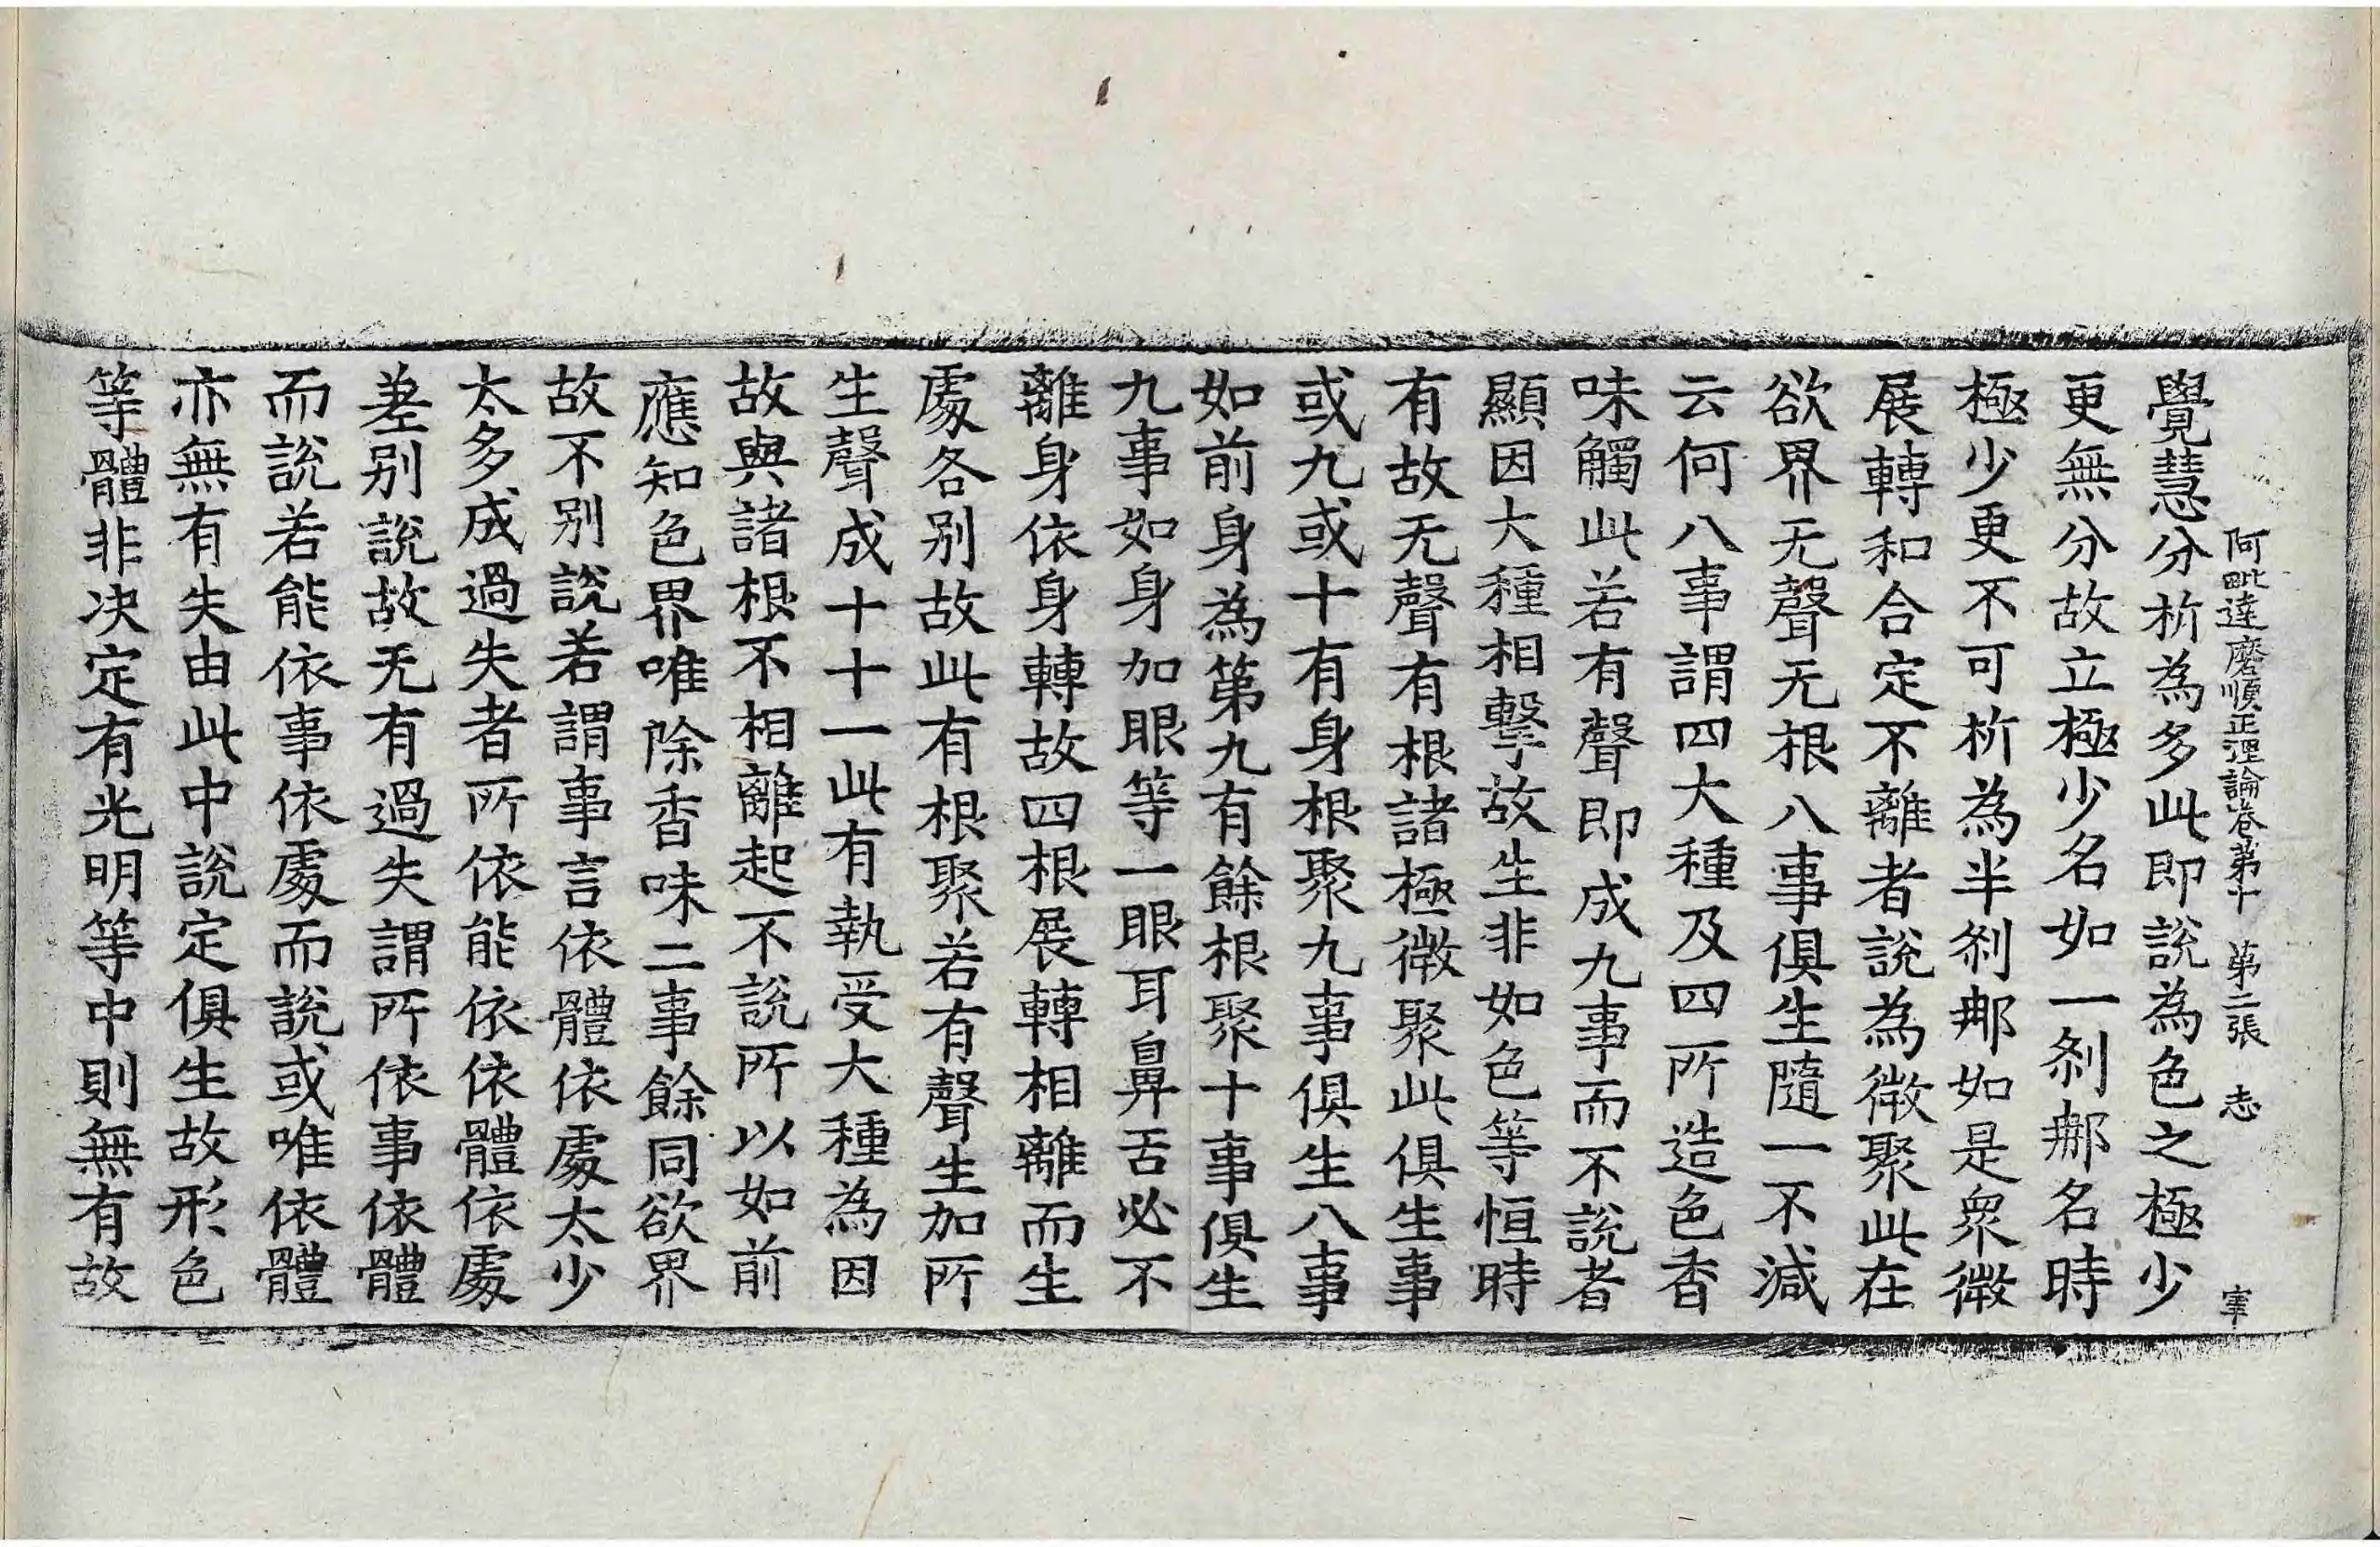 阿毗達磨順正理論卷第十 第二張 志
覺慧分析為多此即說為色之極少
更無分故立極少名如一剎那名時
極少更不可析為半剎那如是衆微
展轉和合定不離者說為微聚此在
欲界无聲无根八事俱生隨一不減
云何八事謂四大種及四所造色香
味觸此若有聲即成九事而不說者
顯因大種相擊故生非如色等恒時
有故无聲有根諸極微聚此俱生事
或九或十有身根聚九事俱生八事
如前身為第九有餘根聚十事俱生
九事如身加眼等一眼耳鼻舌必不
離身依身轉故四根展轉相離而生
處各別故此有根聚若有聲生加所
生聲成十十一此有執受大種為因
故與諸根不相離起不說所以如前
應知色界唯除香味二事餘同欲界
故不別說若謂事言依體依處太少
太多成過失者所依能依依體依處
差別說故无有過失謂所依事依體
而說若能依事依處而說或唯依體
亦無有失由此中說定俱生故形色
等體非决定有光明等中則無有故